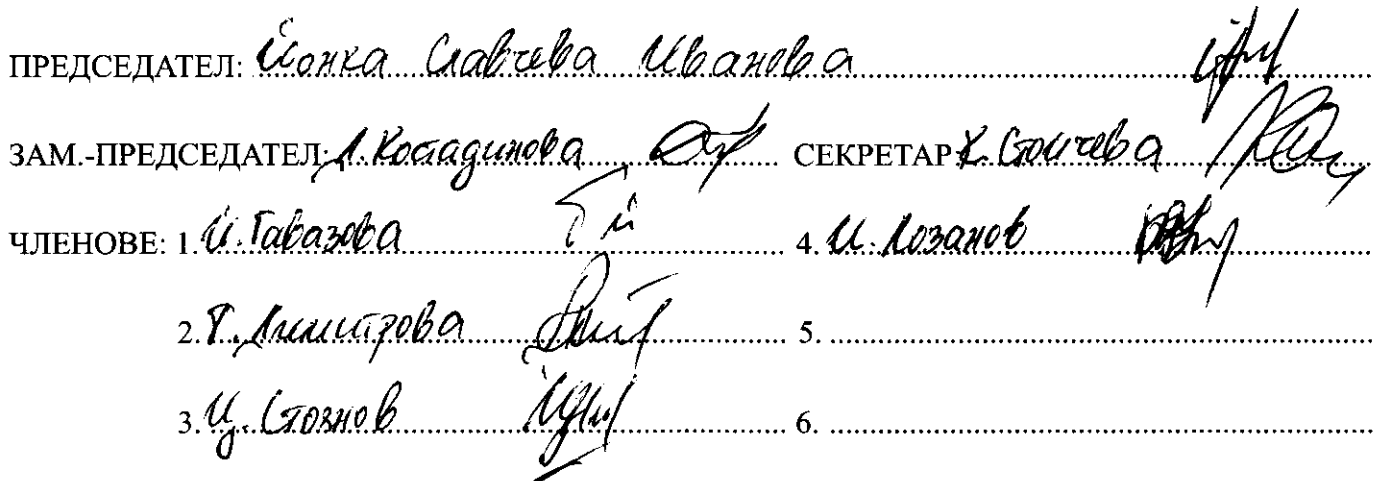 ПРЕДСЕДАТЕЛ: Йонка Славчева Иванова
ЗАМ.-ПРЕДСЕДАТЕЛ: Костадинова СЕКРЕТАР К. Стойчева
ЧЛЕНОВЕ: 1. Й. Гавазова 4. И. Лозанов
2. Димитрова 5.
3. Ц. Стоянов 6.